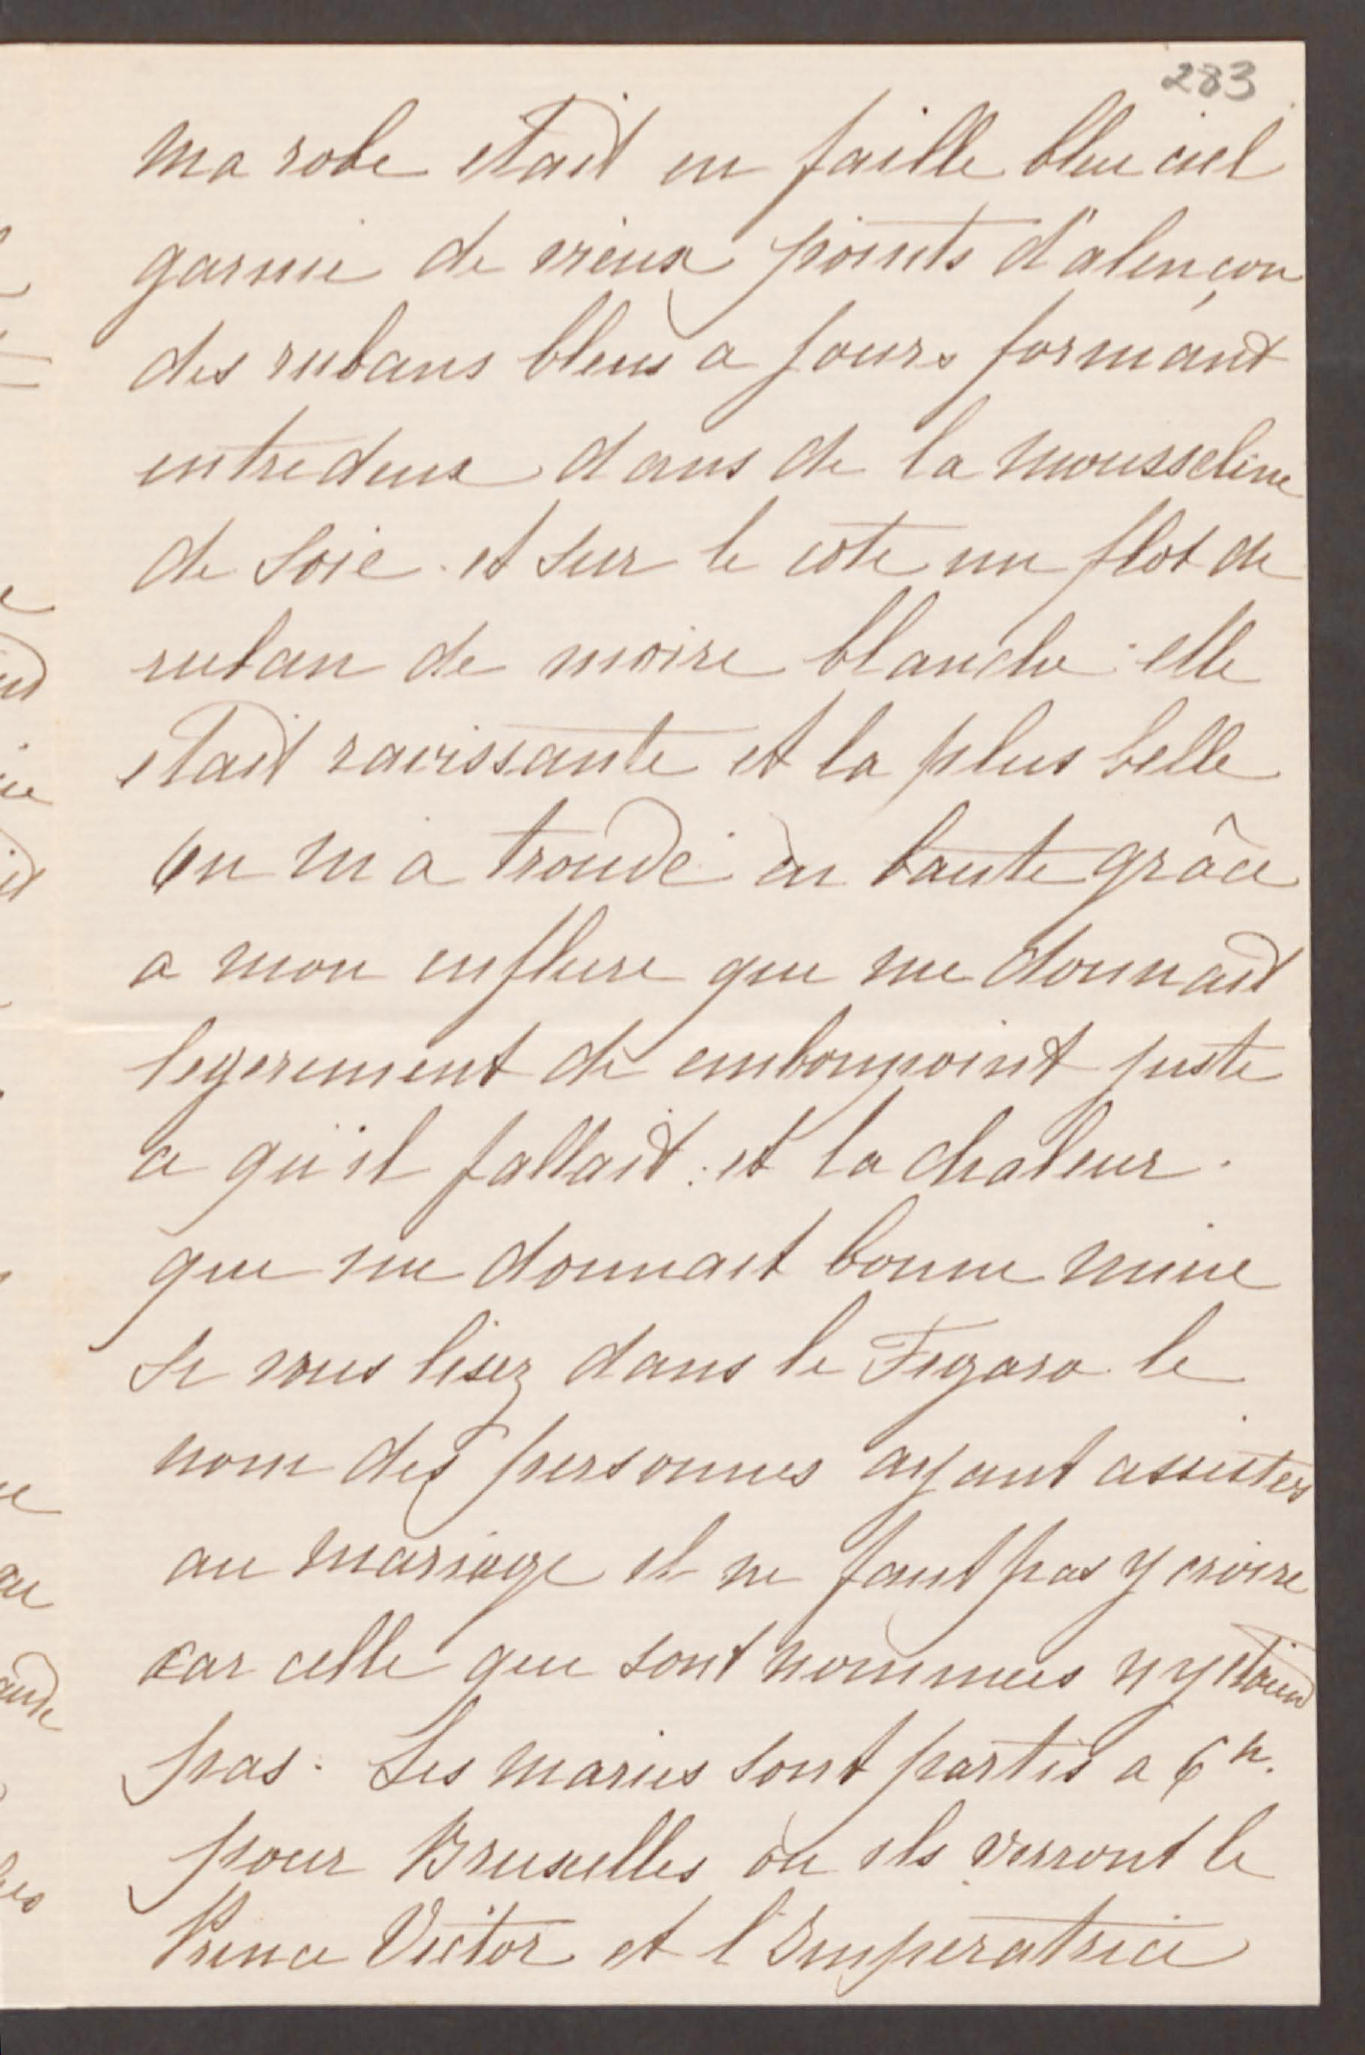 283
ma robe etait en faille bleu ciel
garnie de vieux points d'alençon
des rubans bleus a jours formant
entredeux dans de la mousseline
de soie. et sur le cote un flot de
ruban de moire blanche. elle
etait ravissante et la plus belle
on m'a trouvé en beauté grâce
a mon enflure que me donnait
legerement de embonpoint juste
ce qu'il fallait. et la chaleur.
que me donnait bonne mine
Si vous lisez dans le Figaro le
nom des personnes ayant assistes
au mariage il ne faut pas y croire
car celle que sont nommees n'y etaient
pas. Les maries sont partis a 6h.
pour Bruxelles ou ils verront le
Prince Victor et l'Imperatrice